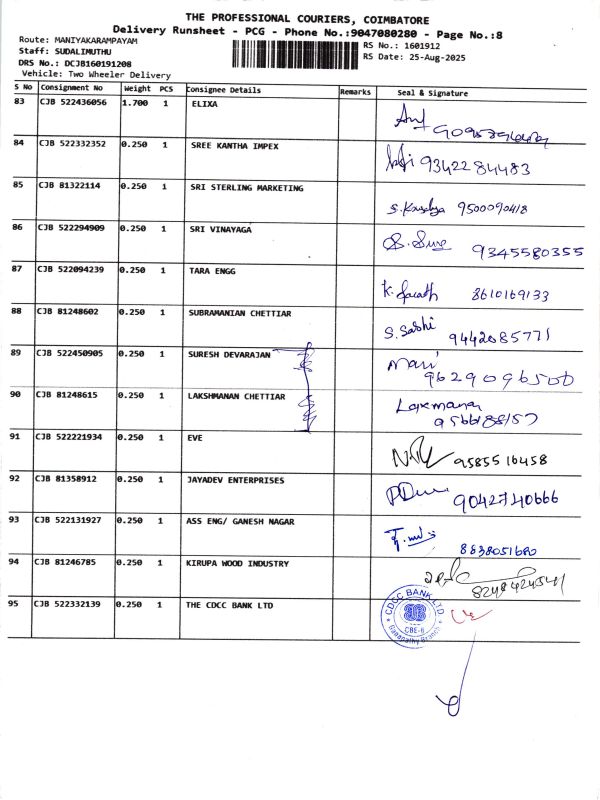 THE PROFESSIONAL COURIERS, COIMBATORE
Delivery Runsheet - PCG - Phone No.:9047080280 - Page No.:8
Route: MANIYAKARAMPAYAM
RS No.: 1601912
Staff: SUDALIMUTHU
RS Date: 25-Aug-2025
DRS No.: DCJB160191208
Vehicle: Two Wheeler Delivery
S No Consignment No Weight PCS Consignee Details Remarks Seal & Signature
83 CJB 522436056 1.700 1 ELIXA
84 CJB 522332352 0.250 1 SREE KANTHA IMPEX 9342284483
85 CJB 81322114 0.250 1 SRI STERLING MARKETING 9500090418
86 CJB 522294909 0.250 1 SRI VINAYAGA 9345580355
87 CJB 522094239 0.250 1 TARA ENGG K. Sarath 8610169133
88 CJB 81248602 0.250 1 SUBRAMANIAN CHETTIAR S. Sashi 9442085771
89 CJB 522450905 0.250 1 SURESH DEVARAJAN Mari 9629096500
90 CJB 81248615 0.250 1 LAKSHMANAN CHETTIAR Laxmanan
91 CJB 522221934 0.250 1 EVE 9585516458
92 CJB 81358912 0.250 1 JAYADEV ENTERPRISES 9042740666
93 CJB 522131927 0.250 1 ASS ENG/ GANESH NAGAR
94 CJB 81246785 0.250 1 KIRUPA WOOD INDUSTRY
95 CJB 522332139 0.250 1 THE CDCC BANK LTD
CDCC BANK LTD.
CBE-6
Ganapathy Branch